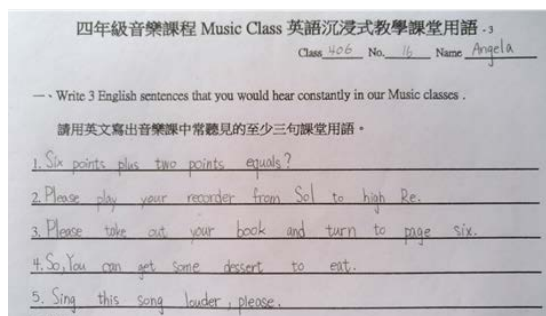 四年級音樂課程 Music Class 英語沉浸式教學課堂用語 - 3
Class 406 No. 16 Name Angela
一、Write 3 English sentences that you would hear constantly in our Music classes .
請用英文寫出音樂課中常聽見的至少三句課堂用語。
1. Six points plus two points equals?
2. Please play your recorder from Sol to high Re.
3. Please take out your book and turn to page six.
4. So, You can get some dessert to eat.
5. Sing this song louder, please.